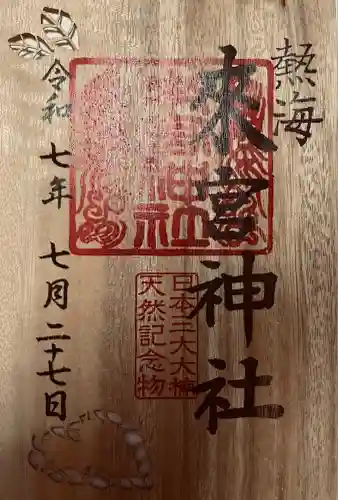 熱海
來宮神社
日本三大大楠
天然記念物
令和 七年 七月 二十七日